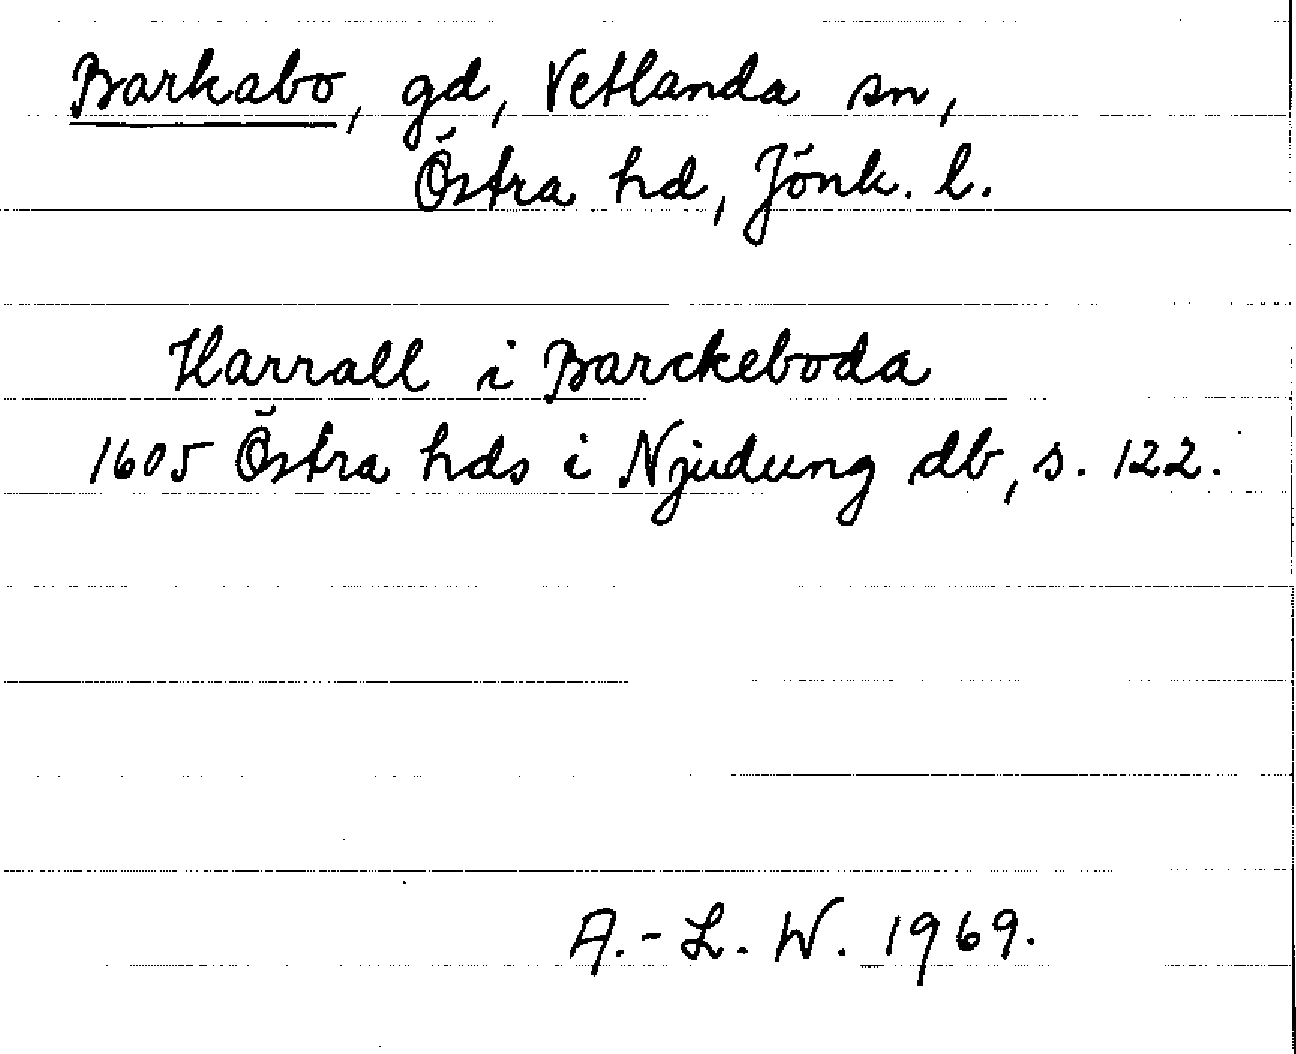 Barkabo, gd, Vetlanda sn,
Östra hd, Jönk. l.
Harrall i Barckeboda
1605 Östra hds i Njudung db, s. 122.
A.-L. W. 1969.